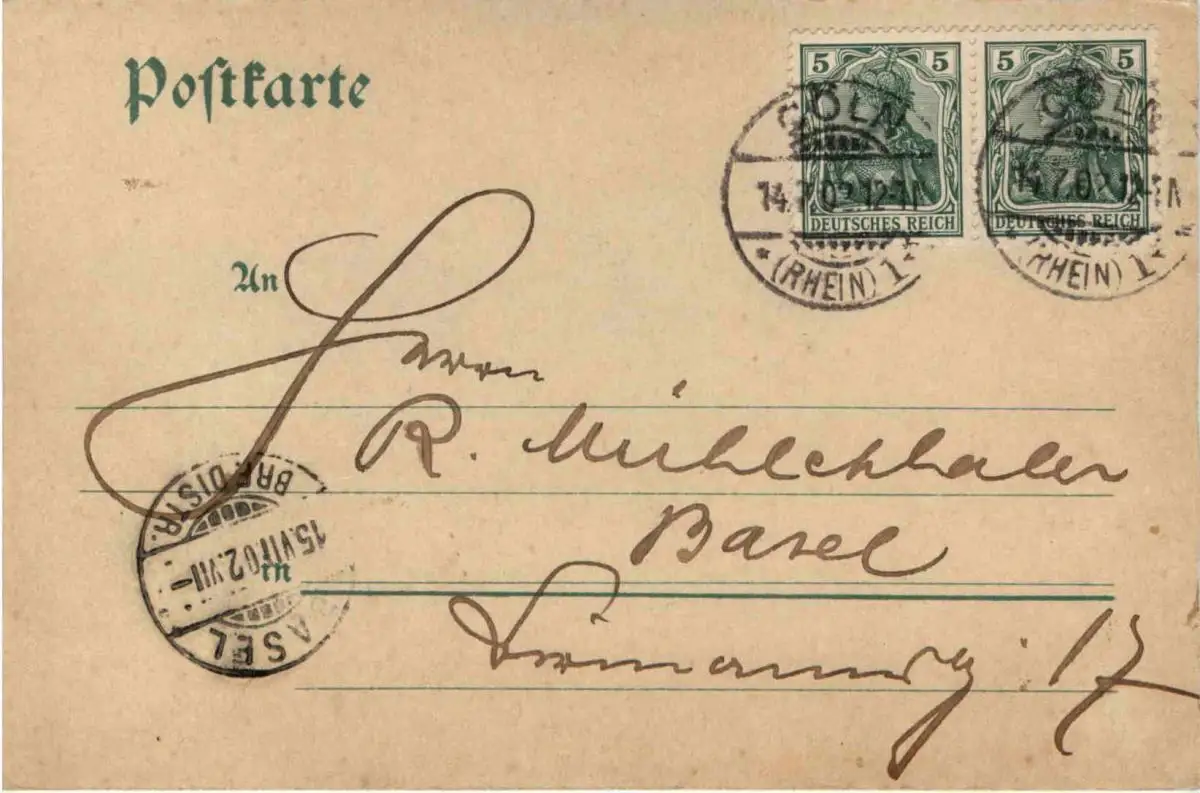 Postkarte
5 5 5 5
CÖLN
14.7.02.12-1N
*(RHEIN) 1
DEUTSCHES REICH
CÖLN
14.7.02.12-1N
*(RHEIN) 1
DEUTSCHES REICH
An
Herrn
R. Mühlethaler
Basel
in
17
BASEL
15.VII.02.VII-